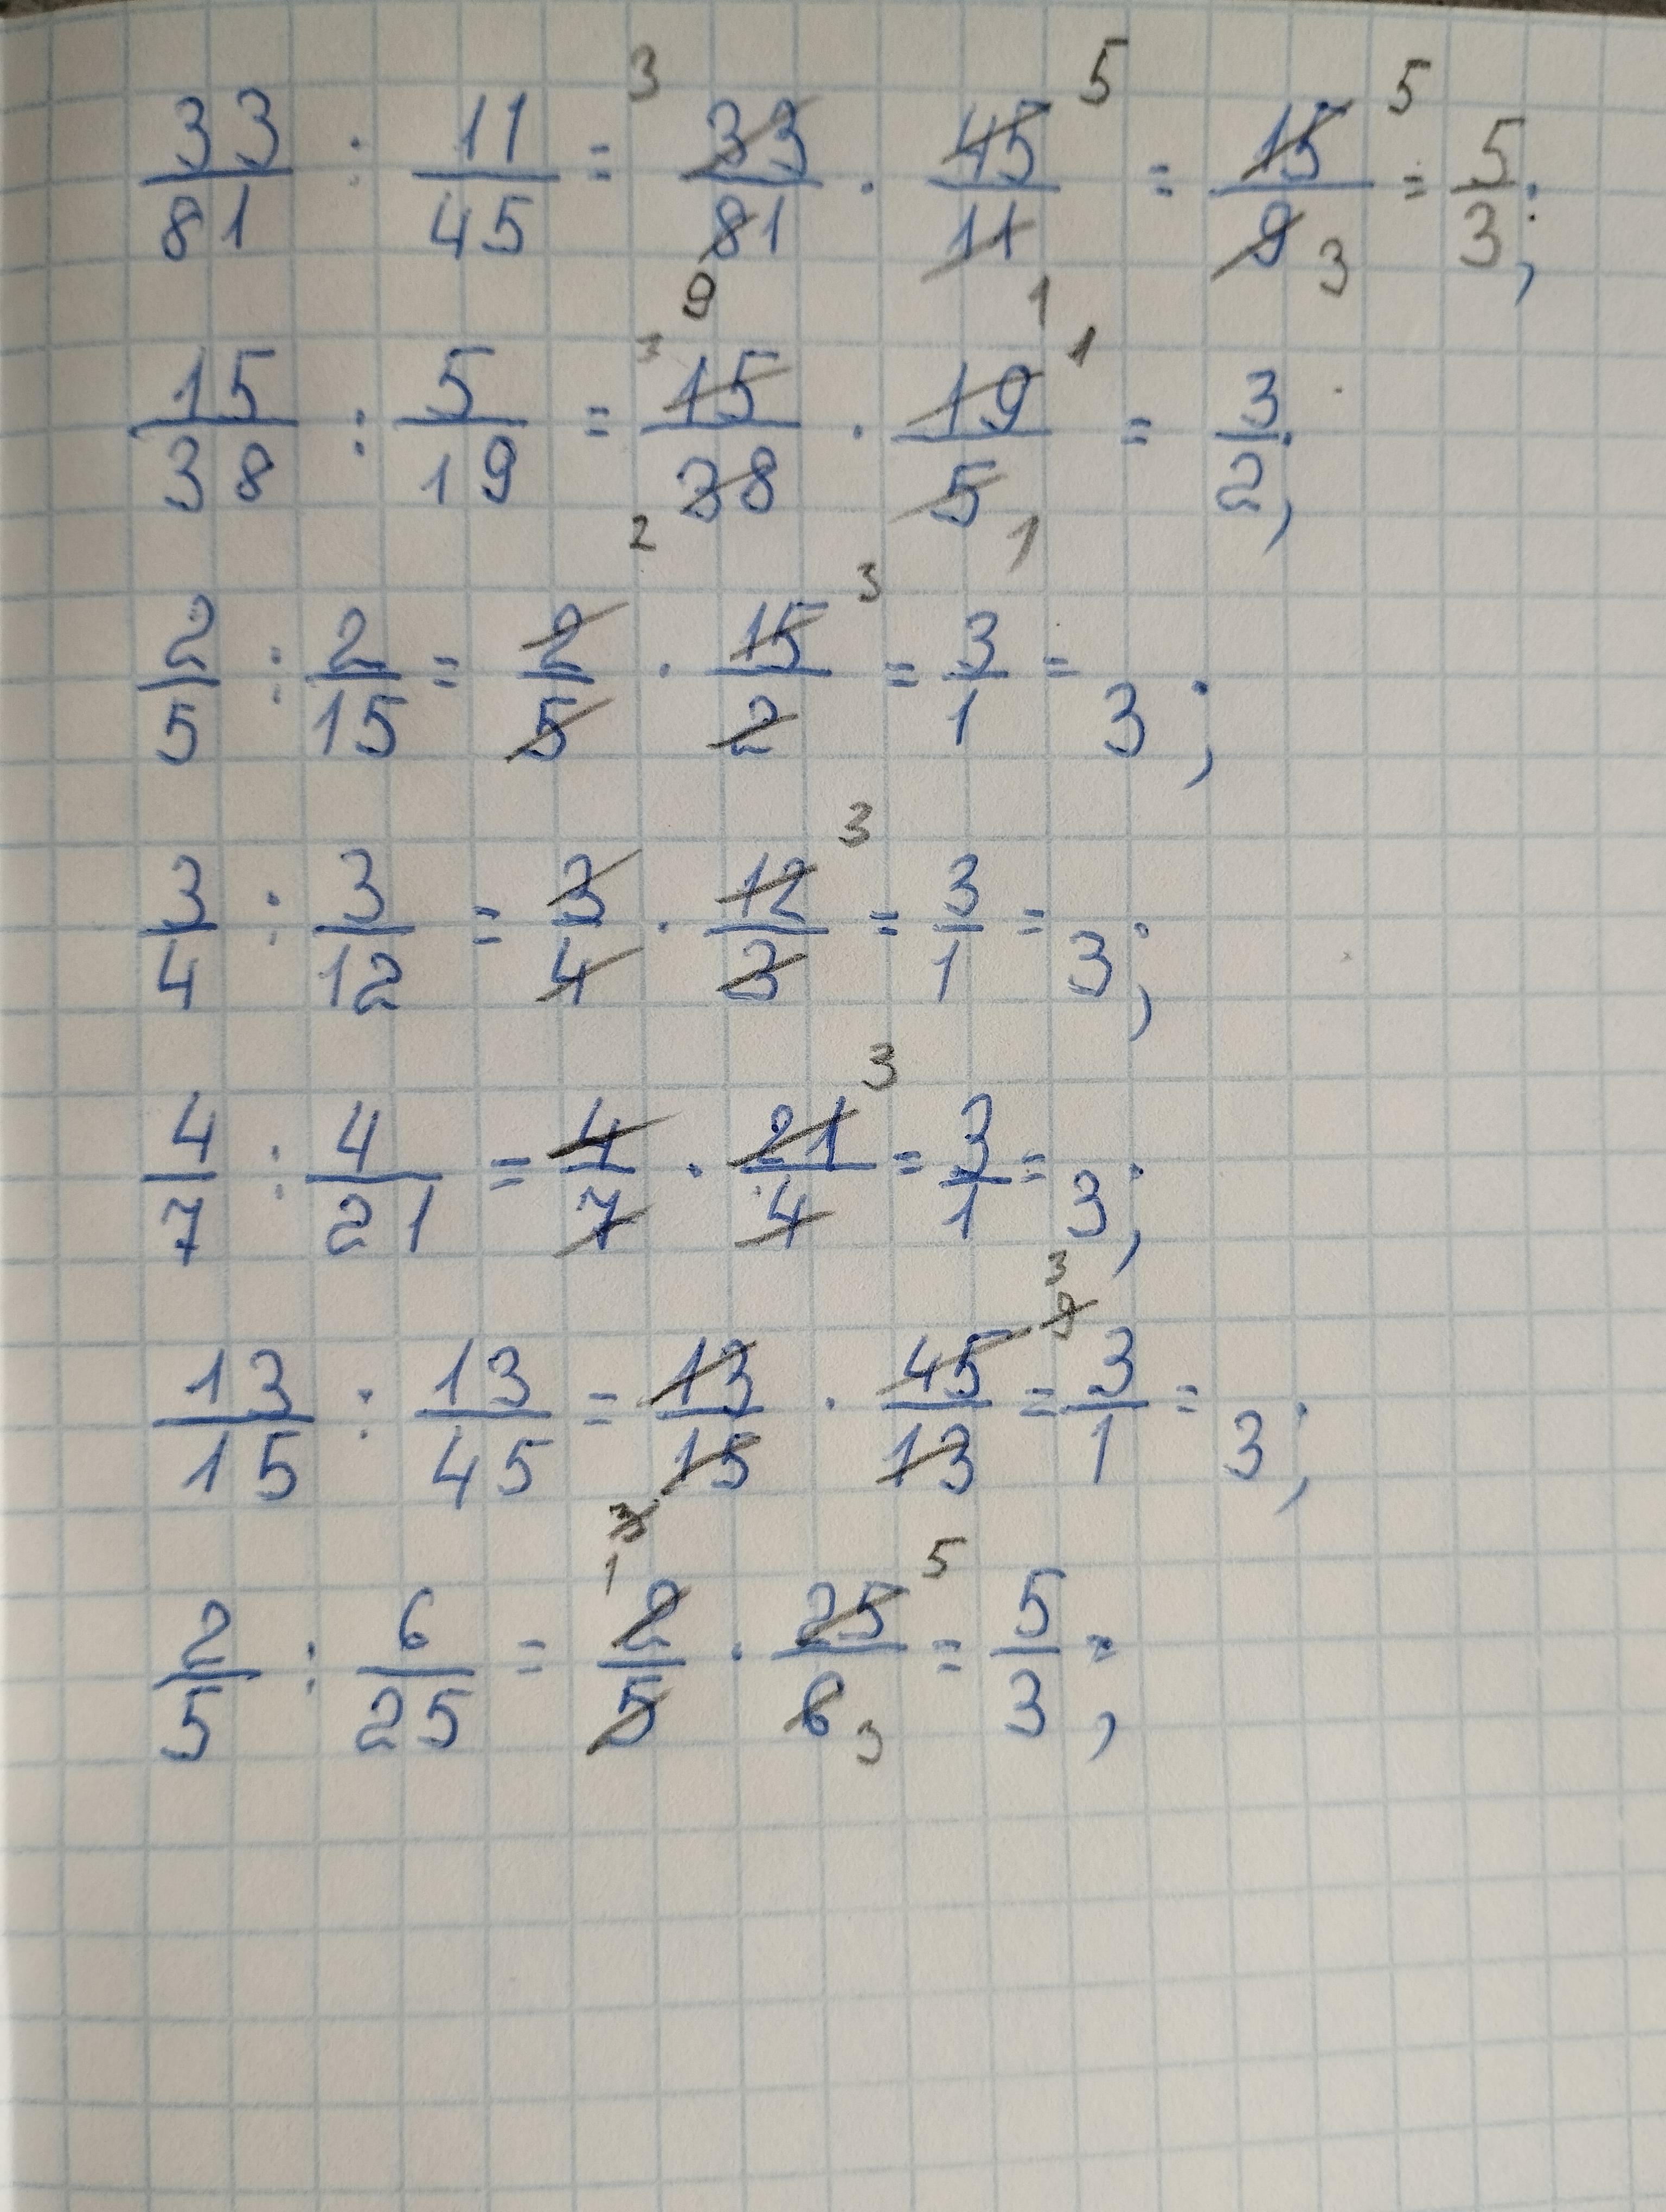 33/81 : 11/45 = 33/81 (3, 9) · 45/11 (5, 1) = 15/9 (5, 3) = 5/3;
15/38 : 5/19 = 15/38 (3, 2) · 19/5 (1, 1) = 3/2;
2/5 : 2/15 = 2/5 · 15/2 (3) = 3/1 = 3;
3/4 : 3/12 = 3/4 · 12/3 (3) = 3/1 = 3;
4/7 : 4/21 = 4/7 · 21/4 (3) = 3/1 = 3;
13/15 : 13/45 = 13/15 (3, 1) · 45/13 (9, 3) = 3/1 = 3;
2/5 : 6/25 = 2/5 · 25/6 (5, 3) = 5/3;